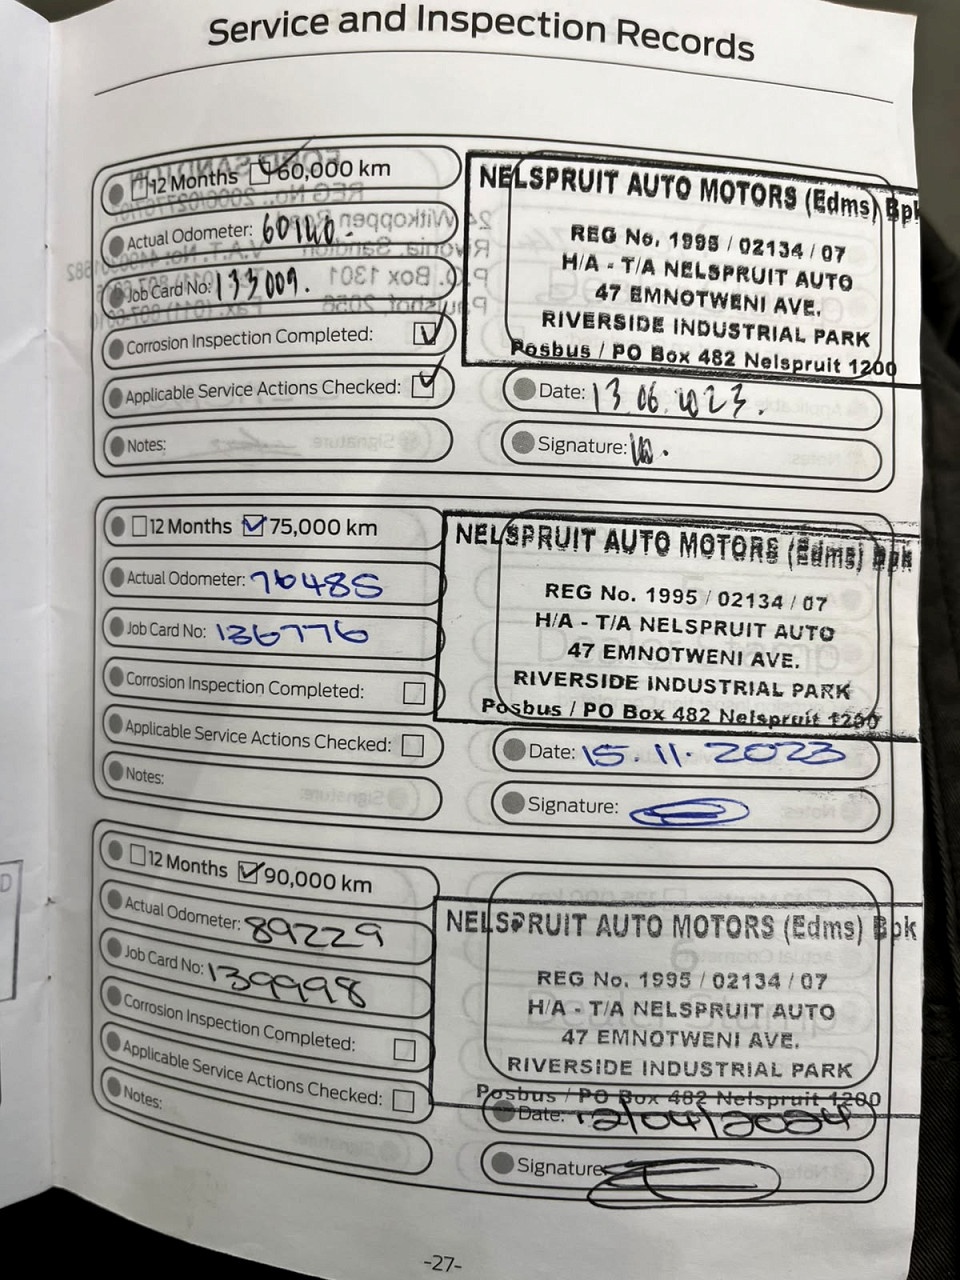 Service and Inspection Records
12 Months 60,000 km
Actual Odometer: 60140.
Job Card No: 133009.
Corrosion Inspection Completed:
Applicable Service Actions Checked:
Notes:
NELSPRUIT AUTO MOTORS (Edms) Bpk
REG No. 1995 / 02134 / 07
H/A - T/A NELSPRUIT AUTO
47 EMNOTWENI AVE.
RIVERSIDE INDUSTRIAL PARK
Posbus / PO Box 482 Nelspruit 1200
Date: 13.06.2023.
Signature:
12 Months 75,000 km
Actual Odometer: 76485
Job Card No: 136776
Corrosion Inspection Completed:
Applicable Service Actions Checked:
Notes:
NELSPRUIT AUTO MOTORS (Edms) Bpk
REG No. 1995 / 02134 / 07
H/A - T/A NELSPRUIT AUTO
47 EMNOTWENI AVE.
RIVERSIDE INDUSTRIAL PARK
Posbus / PO Box 482 Nelspruit 1200
Date: 15.11.2023
Signature:
12 Months 90,000 km
Actual Odometer: 89229
Job Card No: 139998
Corrosion Inspection Completed:
Applicable Service Actions Checked:
Notes:
NELSPRUIT AUTO MOTORS (Edms) Bpk
REG No. 1995 / 02134 / 07
H/A - T/A NELSPRUIT AUTO
47 EMNOTWENI AVE.
RIVERSIDE INDUSTRIAL PARK
Posbus / PO Box 482 Nelspruit 1200
Date: 12/04/2024
Signature:
-27-